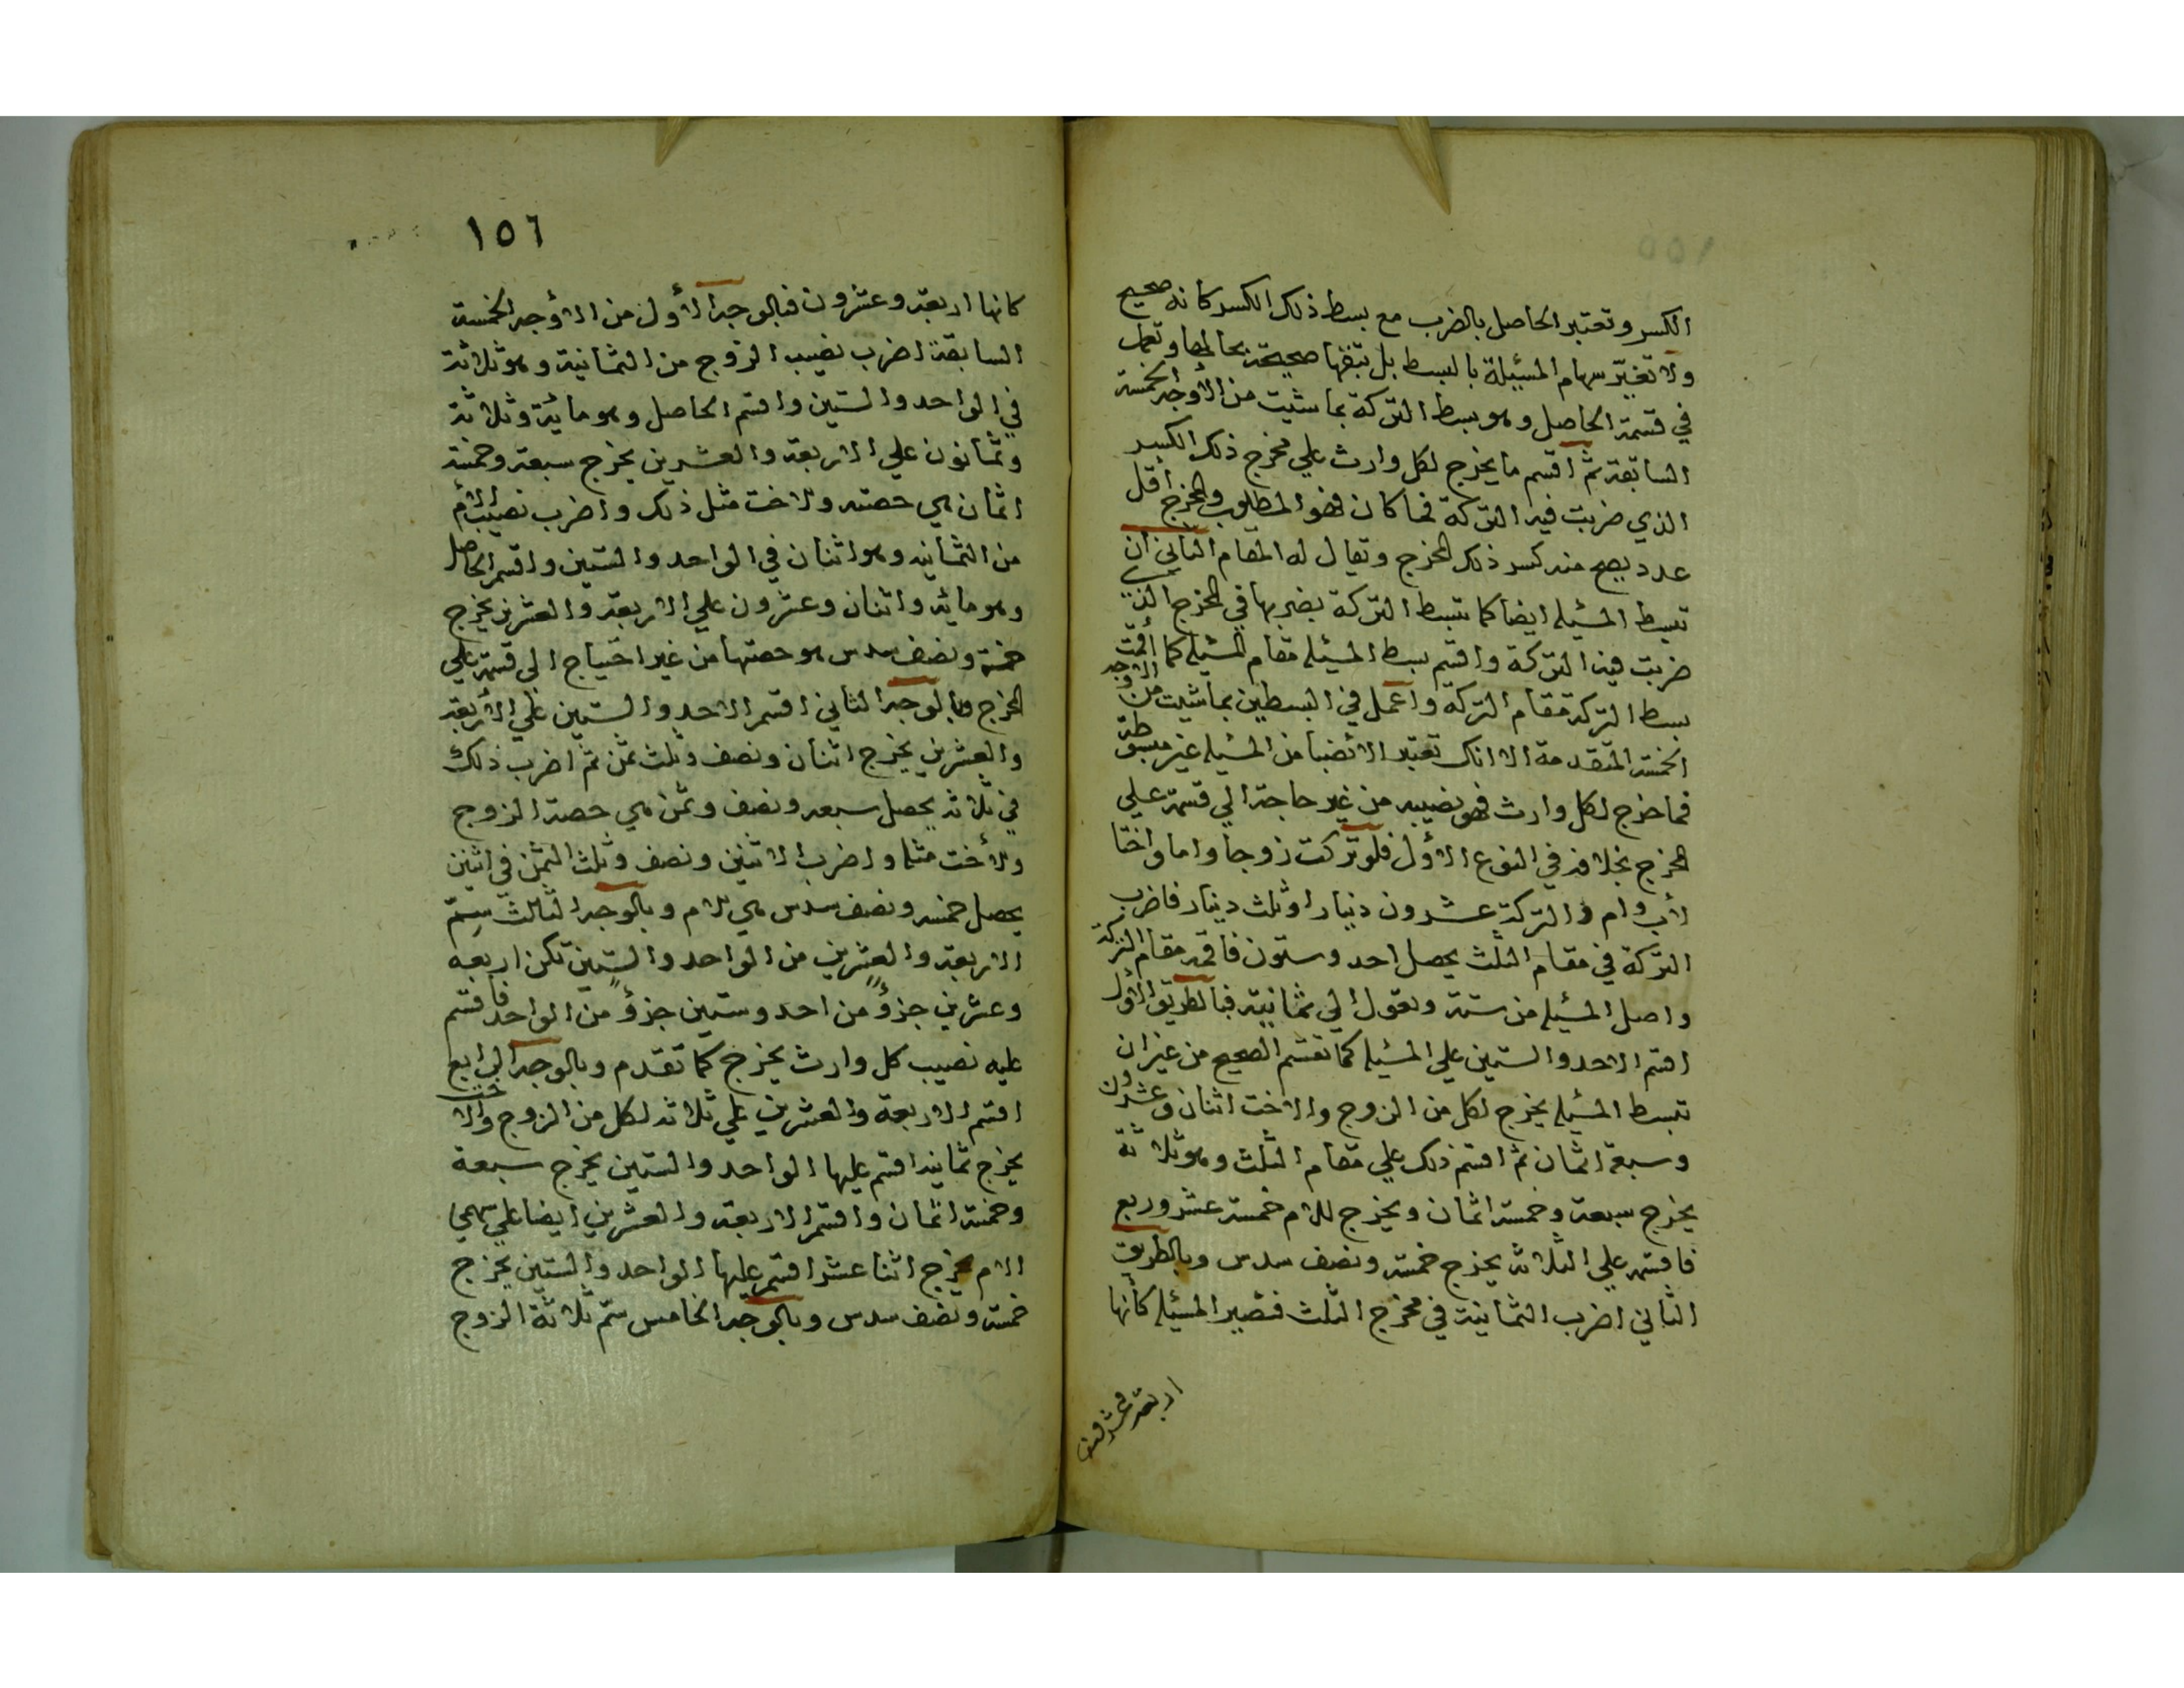 الكسر وتعتبر الحاصل بالضرب مع بسط ذلك الكسر كانه صحيح
ولا تغيّر سهام المسئلة بالبسط بل تبقها صحيحة بحالها وتعمل
في قسمة الحاصل وهو بسط التركة بما شئت من الأوجه الخمسة
السابقة ثم اقسم ما يخرج لكل وارث علي مخرج ذلك الكسر
الذي ضربت فيه التركة فما كان فهو المطلوب والمخرج أقل
عدد يصح منه كسر ذلك المخرج ويقال له المقام الثاني ان
تبسط المسئله ايضا كما تبسط التركة بضربها في المخرج الذي
ضربت فيه التركة واقيم بسط المسئله مقام المسئله كما أقمت
بسط التركة مقام التركة واعمل في البسطين بما شيت من الاوجه
الخمسة المتقدمة الا انك تعتبر الأنصبا من المسئله غير مبسوطة
فما خرج لكل وارث فهو نصيبه من غير حاجة الي قسمة علي
المخرج بخلافه في النوع الأول فلو تركت زوجا واما واختا
لأب وام والتركة عشرون دنيارا وثلث دينار فاضرب
التركة في مقام الثلث يحصل احد وستون فاقمه مقام التركة
واصل المسئله من ستة وتعول الي ثمانية فبالطريق الأول
اقسم الاحد والستين علي المسئله كما تقسم الصحيح من غير ان
تبسط المسئله يخرج لكل من الزوج والاخت اثنان وعشرون
وسبعة اثمان ثم اقسم ذلك علي مقام الثلث وهو ثلاثة
يخرج سبعة وخمسة اثمان ويخرج للام خمسة عشر وربع
فاقسمه علي الثلاثه يخرج خمسه ونصف سدس وبالطريق
الثاني اضرب الثمانية في مخرج الثلث فتصير المسئله كأنها
اربعة وعشرون
١٥٦
كانها اربعة وعشرون فبالوجه الأول من الأوجه الخمسة
السابقة اضرب نصيب الزوج من الثمانية وهو ثلاثة
في الواحد والستين واقسم الحاصل وهو مائة وثلاثة
وثمانون علي الاربعة والعشرين يخرج سبعة وخمسة
اثمان هي حصته وللاخت مثل ذلك واضرب نصيب الأم
من الثمانيه وهو اثنان في الواحد والستين واقسم الحاصل
وهو مائه واثنان وعشرون علي الاربعة والعشرين يخرج
خمسة ونصف سدس هو حصتها من غير احتياج الي قسمة علي
المخرج وبالوجه الثاني اقسم الاحد والستين علي الأربعة
والعشرين يخرج اثنان ونصف وثلث ثمن ثم اضرب ذلك
في ثلاثه يحصل سبعه ونصف وثمن هي حصة الزوج
وللأخت مثله واضرب الاثنين ونصف وثلث الثمن في اثنين
يحصل خمسه ونصف سدس هي للام وبالوجه الثالث سم
الاربعة والعشرين من الواحد والستين تكن اربعه
وعشرين جزؤ من احد وستين جزؤ من الواحد فاقسم
عليه نصيب كل وارث يخرج كما تقدم وبالوجه الرابع
اقسم الاربعة والعشرين علي ثلاثه لكل من الزوج والاخت
يخرج ثمانيه اقسم عليها الواحد والستين يخرج سبعة
وخمسة اثمان واقسم الاربعة والعشرين ايضا علي سهمي
الام يخرج اثنا عشر اقسم عليها الواحد والستين يخرج
خمسة ونصف سدس وبالوجه الخامس سم ثلاثة الزوج